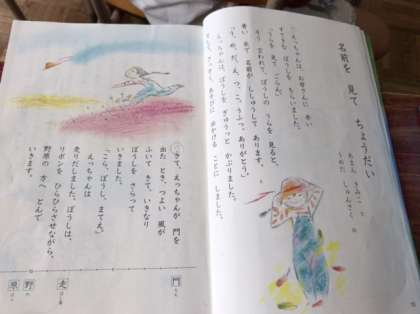 名前を 見て ちょうだい
あまん きみこ 作
えっちゃんは、お母さんに 赤い
すてきな ぼうしを もらいました。
「うらを 見て ごらん。」
そう 言われて、ぼうしの うらを 見ると、
青い 糸で 名前が ししゅうして あります。
「う、め、だ、え、つ、こ。うふっ。ありがとう。」
えっちゃんは、ぼうしを ぎゅうっと かぶりました。
あそびに 出かける ことに しました。
さて、えっちゃんが 門を
出た とき、つよい 風が
ふいて きて、いきなり
ぼうしを さらって
いきました。
「こら、ぼうし、まてえ。」
えっちゃんは
走りだしました。ぼうしは、
リボンを ひらひらさせながら、
野原の 方へ とんで
いきます。
門
走
野
原